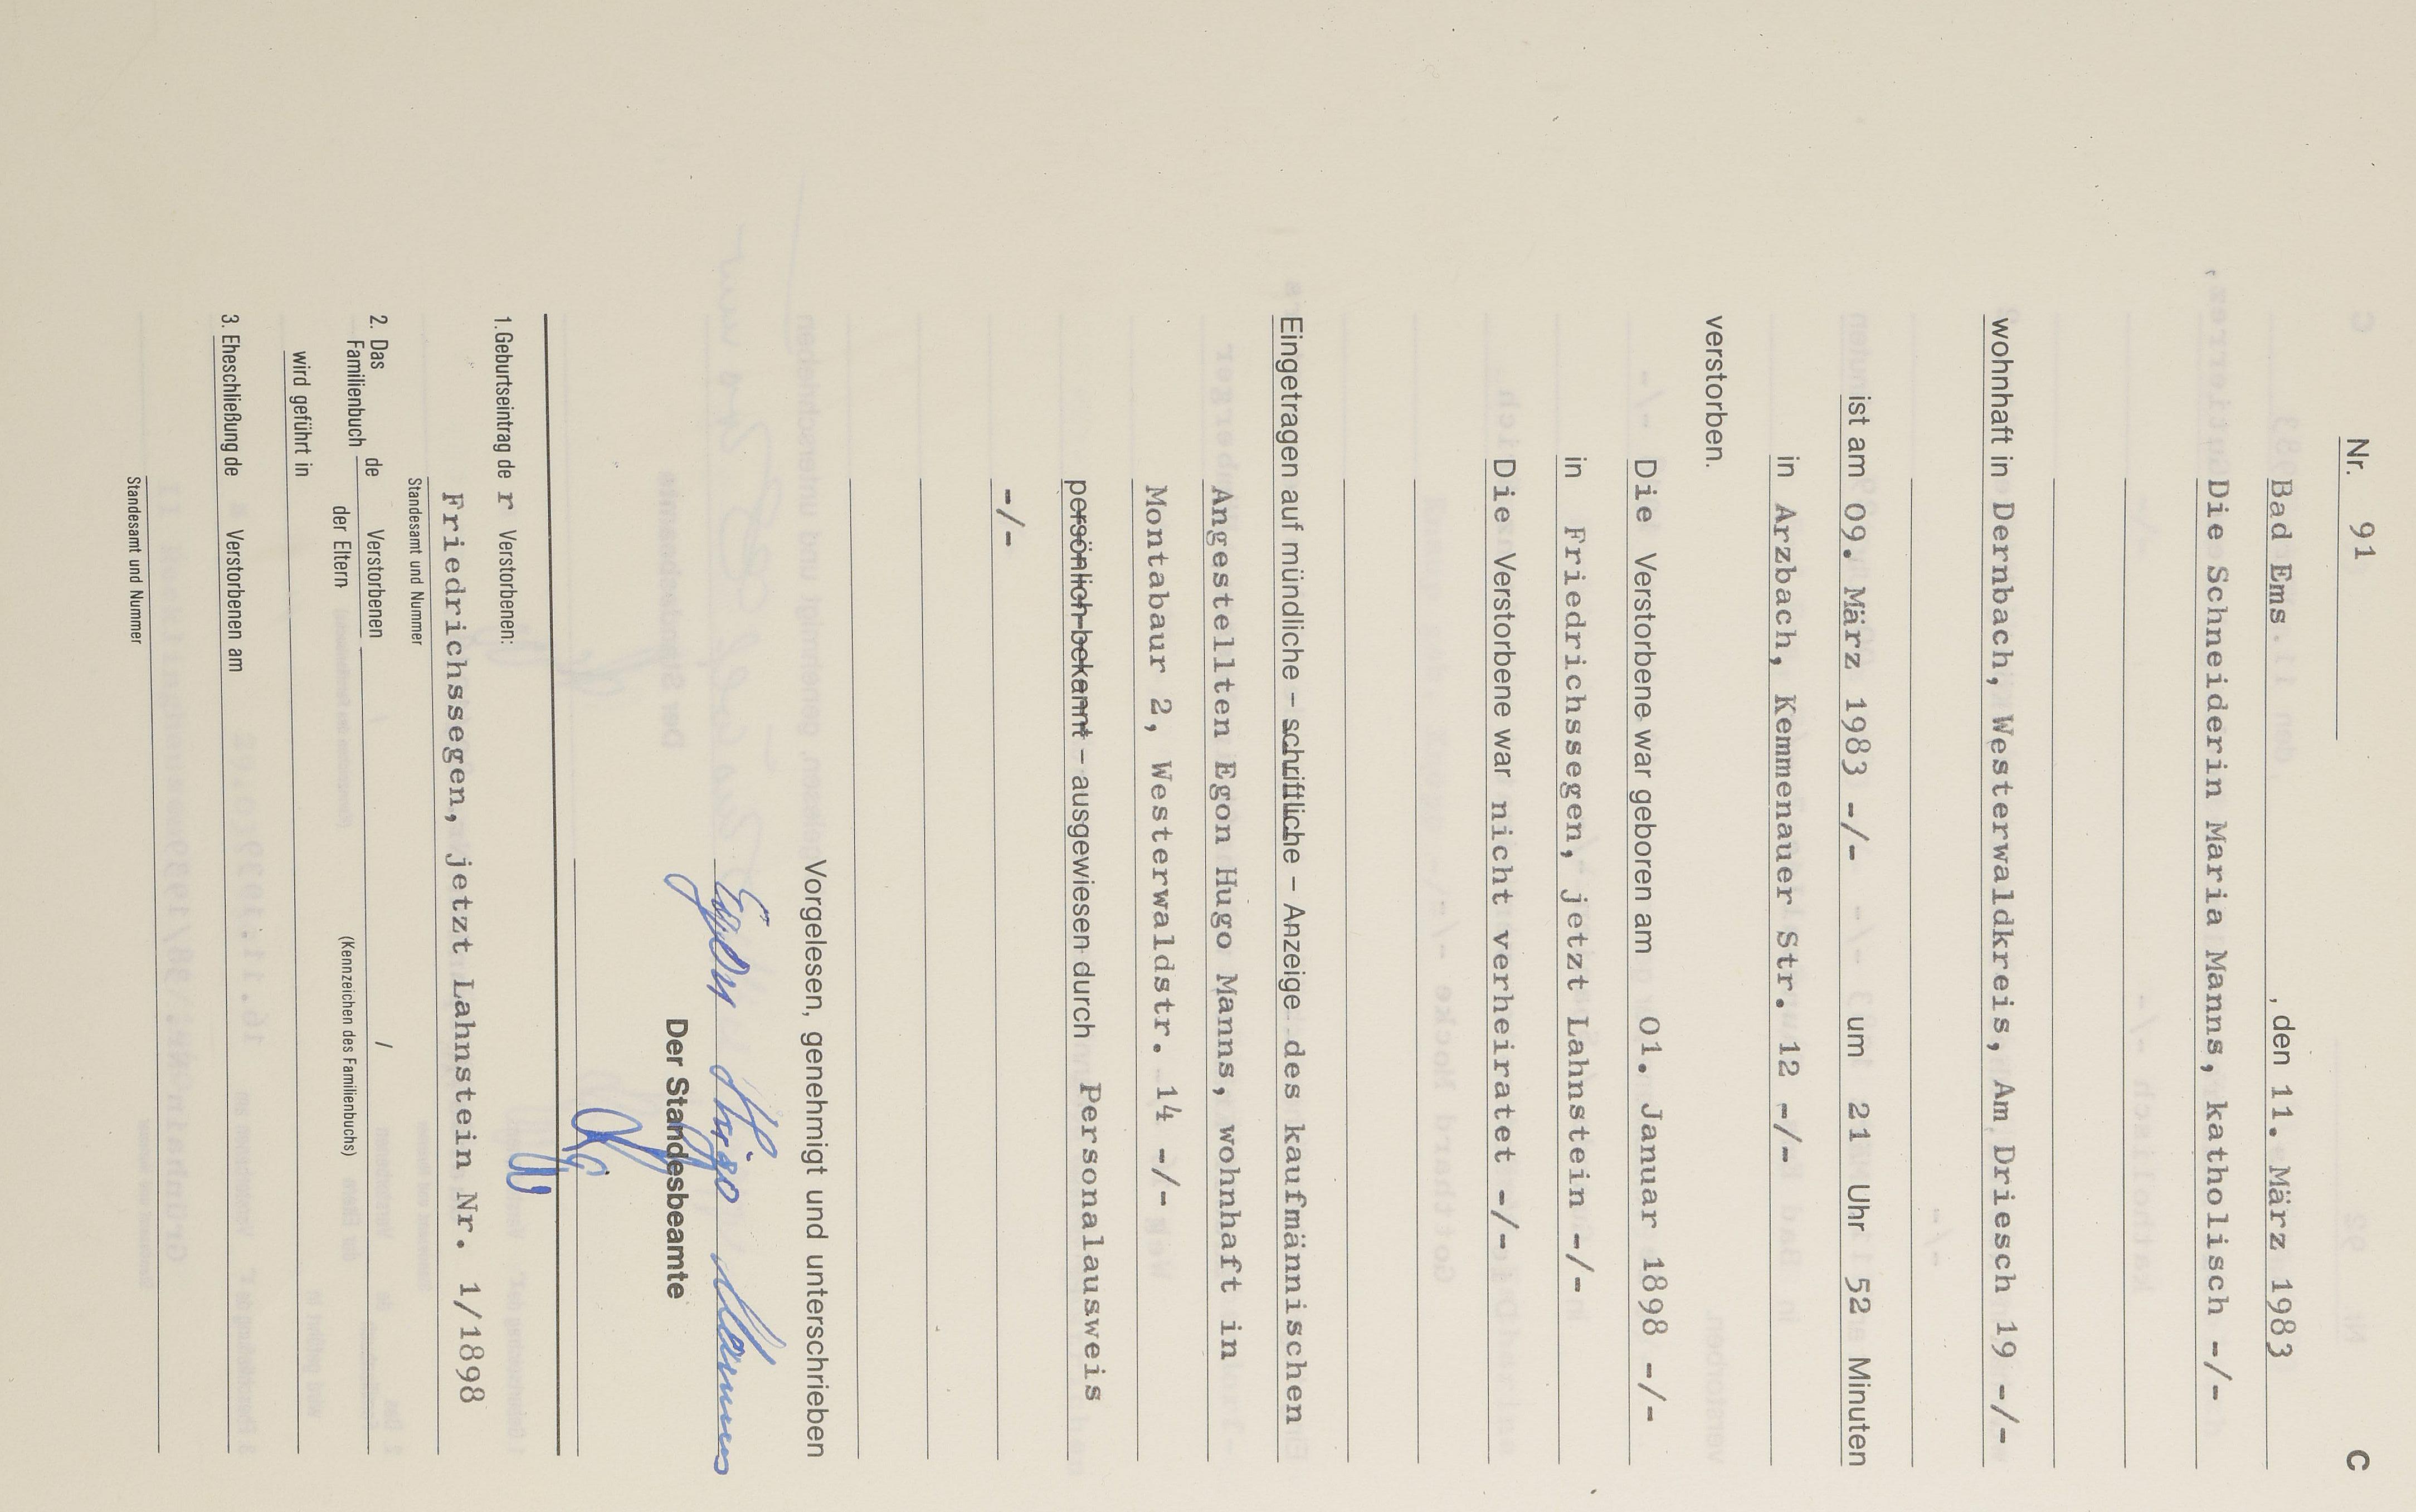 Nr. 91 C
Bad Ems , den 11. März 1983
Die Schneiderin Maria Manns, katholisch -/-
wohnhaft in Dernbach, Westerwaldkreis, Am Driesch 19 -/-
ist am 09. März 1983 -/- um 21 Uhr 52 Minuten
in Arzbach, Kemmenauer Str. 12 -/-
verstorben.
Die Verstorbene war geboren am 01. Januar 1898 -/-
in Friedrichssegen, jetzt Lahnstein -/-
Die Verstorbene war nicht verheiratet -/-
Eingetragen auf mündliche – schriftliche – Anzeige des kaufmännischen
Angestellten Egon Hugo Manns, wohnhaft in
Montabaur 2, Westerwaldstr. 14 -/-
persönlich bekannt – ausgewiesen durch Personalausweis
-/-
Vorgelesen, genehmigt und unterschrieben
Egon Hugo Manns
Der Standesbeamte
1. Geburtseintrag de r Verstorbenen:
Friedrichssegen, jetzt Lahnstein Nr. 1/1898
Standesamt und Nummer
2. Das Familienbuch de Verstorbenen /
der Eltern (Kennzeichen des Familienbuchs)
wird geführt in
3. Eheschließung de Verstorbenen am
Standesamt und Nummer